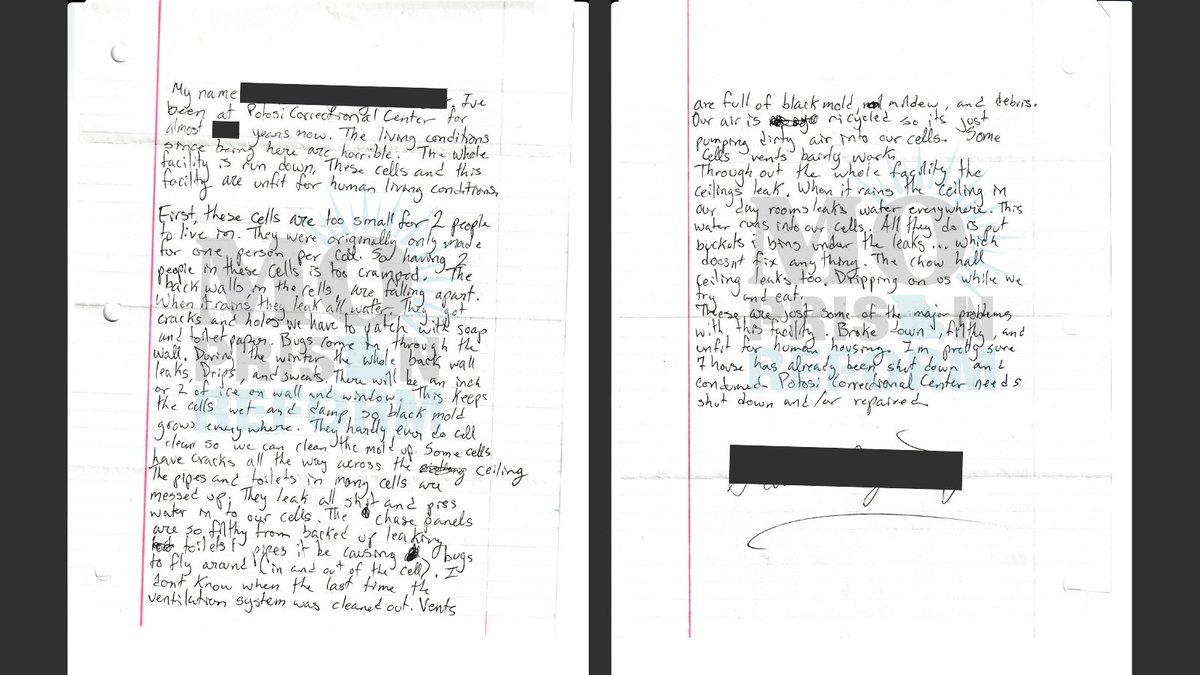 My name
I've
been at Potosi Correctional Center for
almost years now. The living conditions
since being here are horrible. The whole
facility is run down. These cells and this
facility are unfit for human living conditions.
First, these cells are too small for 2 people
to live in. They were originally only made
for one person per cell. So having 2
people in these cells is too cramped. The
back walls in the cells are falling apart.
When it rains, they leak all water. They got
cracks and holes we have to patch with soap
and toilet paper. Bugs come in through the
wall. During the winter the whole back wall
leaks, Drips, and sweats. There will be an inch
or 2 of ice on wall and window. This keeps
the cells wet and damp, so black mold
grows everywhere. They hardly ever do cell
clean so we can clean the mold up. Some cells
have cracks all the way across the ceiling
The pipes and toilets in many cells are
messed up. They leak all shit and piss
water in to our cells. The chase panels
are so filthy from backed up leaking
toilets & pipes it be causing bugs
to fly around (in and out of the cell). I
dont know when the last time the
ventilation system was cleaned out. Vents
are full of black mold, mildew, and debris.
Our air is ricycled so its just
pumping dirty air into our cells. Some
cells vents bairly work.
Through out the whole facility the
ceilings leak. When it rains the ceiling in
our day rooms leaks water everywhere. This
water runs into our cells. All they do is put
buckets & bins under the leaks... which
doesnt fix anything. The chow hall
ceiling leaks, too. Dripping on us while we
try and eat.
These are just some of the major problems
with this facility. Broke down, filthy, and
unfit for human housing. I'm pretty sure
7 house has already been shut down and
condemned. Potosi Correctional Center needs
shut down and/or repaired
MO
PRISON
REFORM
MO
PRISON
REFORM